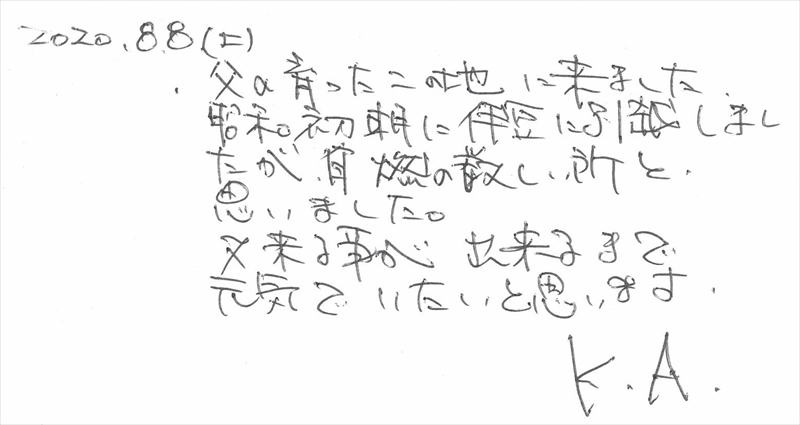 2020.8.8(土)
父の育ったこの地に来ました.
昭和初期に伊豆に引越しまし
たが、自然の厳しい所と.
思いました。
又来る事が出来るまで
元気でいたいと思います.
K.A.